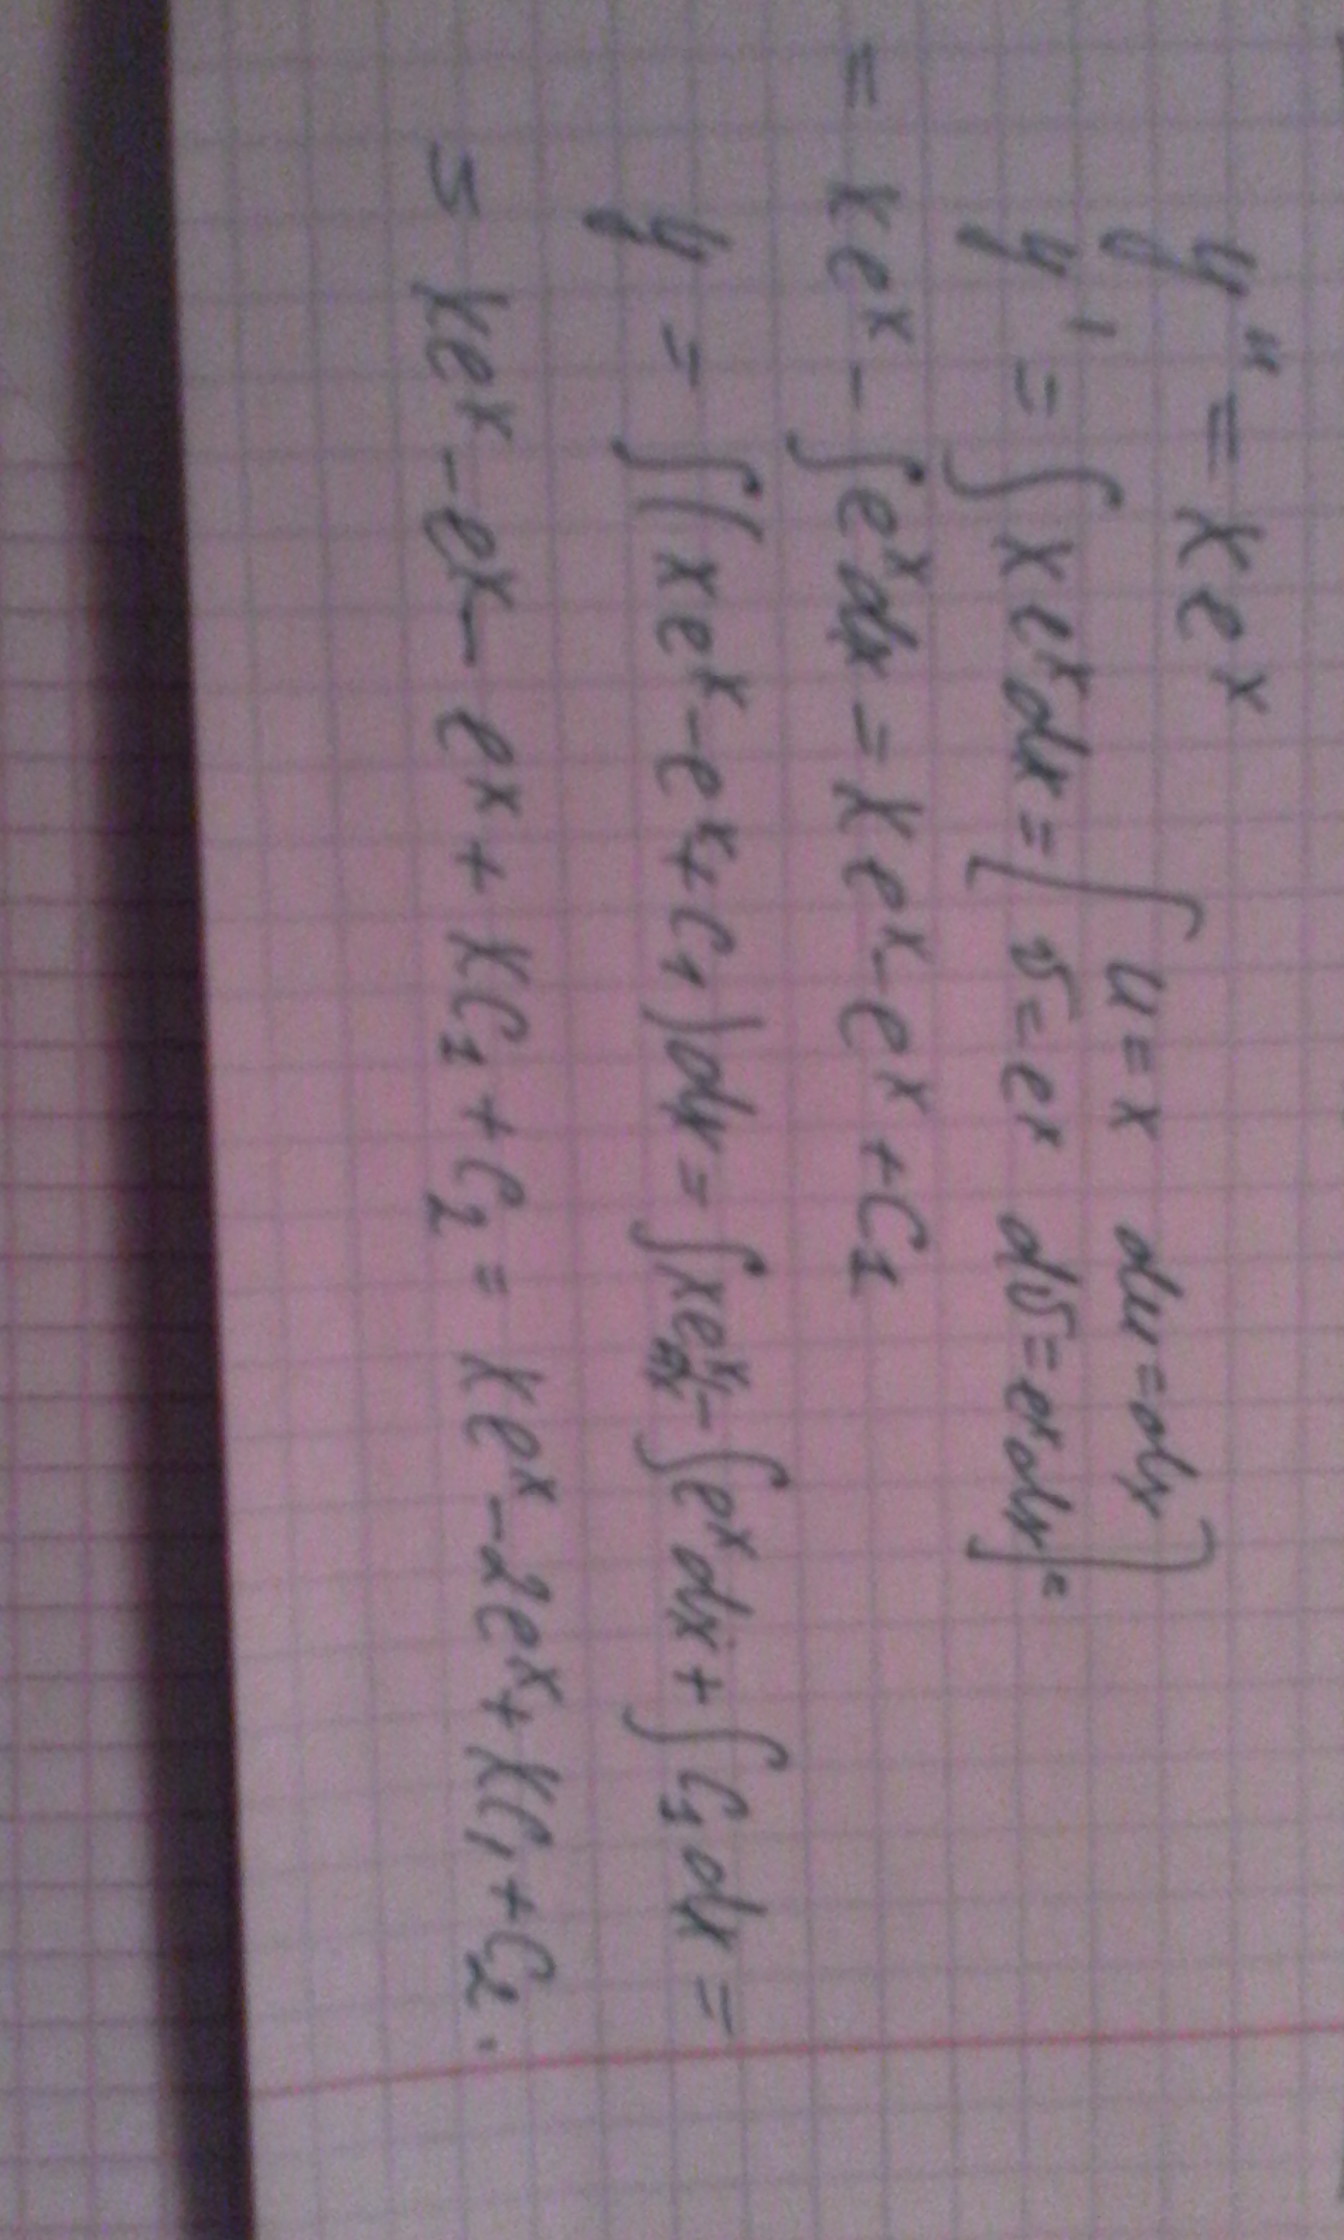 y'' = xe^x
y' = ∫xe^x dx = [u = x du = dx
v = e^x dv = e^x dx] =
= xe^x - ∫e^x dx = xe^x - e^x + C₁
y = ∫(xe^x - e^x + C₁)dx = ∫xe^x dx - ∫e^x dx + ∫C₁dx =
= xe^x - e^x - e^x + xC₁ + C₂ = xe^x - 2e^x + xC₁ + C₂.